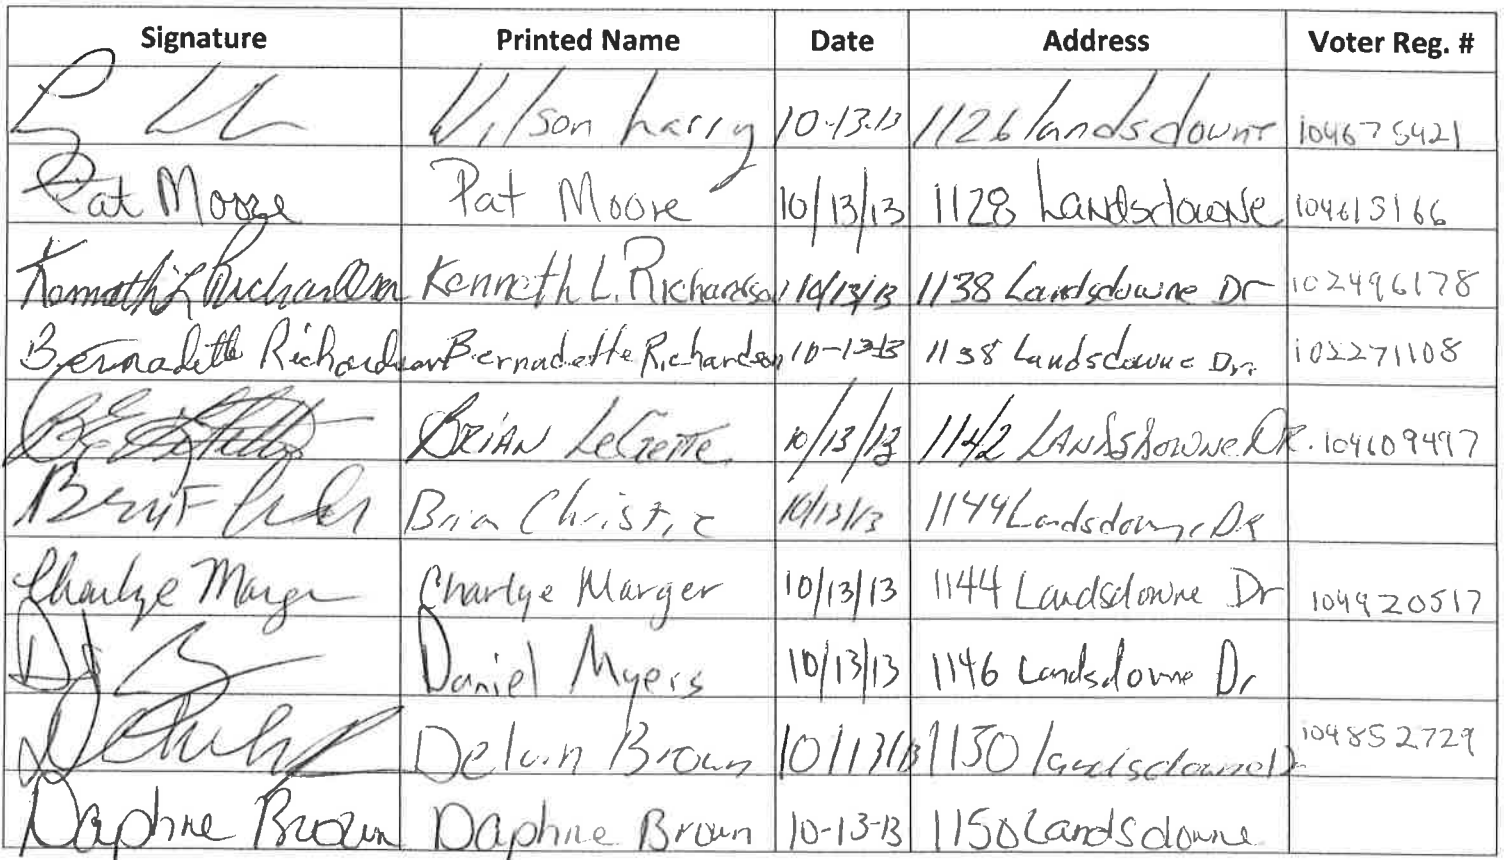 Signature Printed Name Date Address Voter Reg. #
Wilson Larry 10-13-13 1126 landsdowne 104675421
Pat Moore Pat Moore 10/13/13 1128 Landsdowne 104615166
Kenneth L Richardson Kenneth L. Richardson 10/13/13 1138 Landsdowne Dr 102496178
Bernadette Richardson Bernadette Richardson 10-13-13 1138 Landsdowne Dr. 102271108
BRIAN LeGETTE 10/13/13 1142 LANDSDOWNE DR. 104609497
Brian Christie 10/13/13 1144 Landsdowne DR
Charlye Marger Charlye Marger 10/13/13 1144 Landsdowne Dr 104920517
Daniel Myers 10/13/13 1146 Landsdowne Dr
Delvin Brown 10/13/13 1150 landsdowne Dr 104852729
Daphne Brown Daphne Brown 10-13-13 1150 Landsdowne